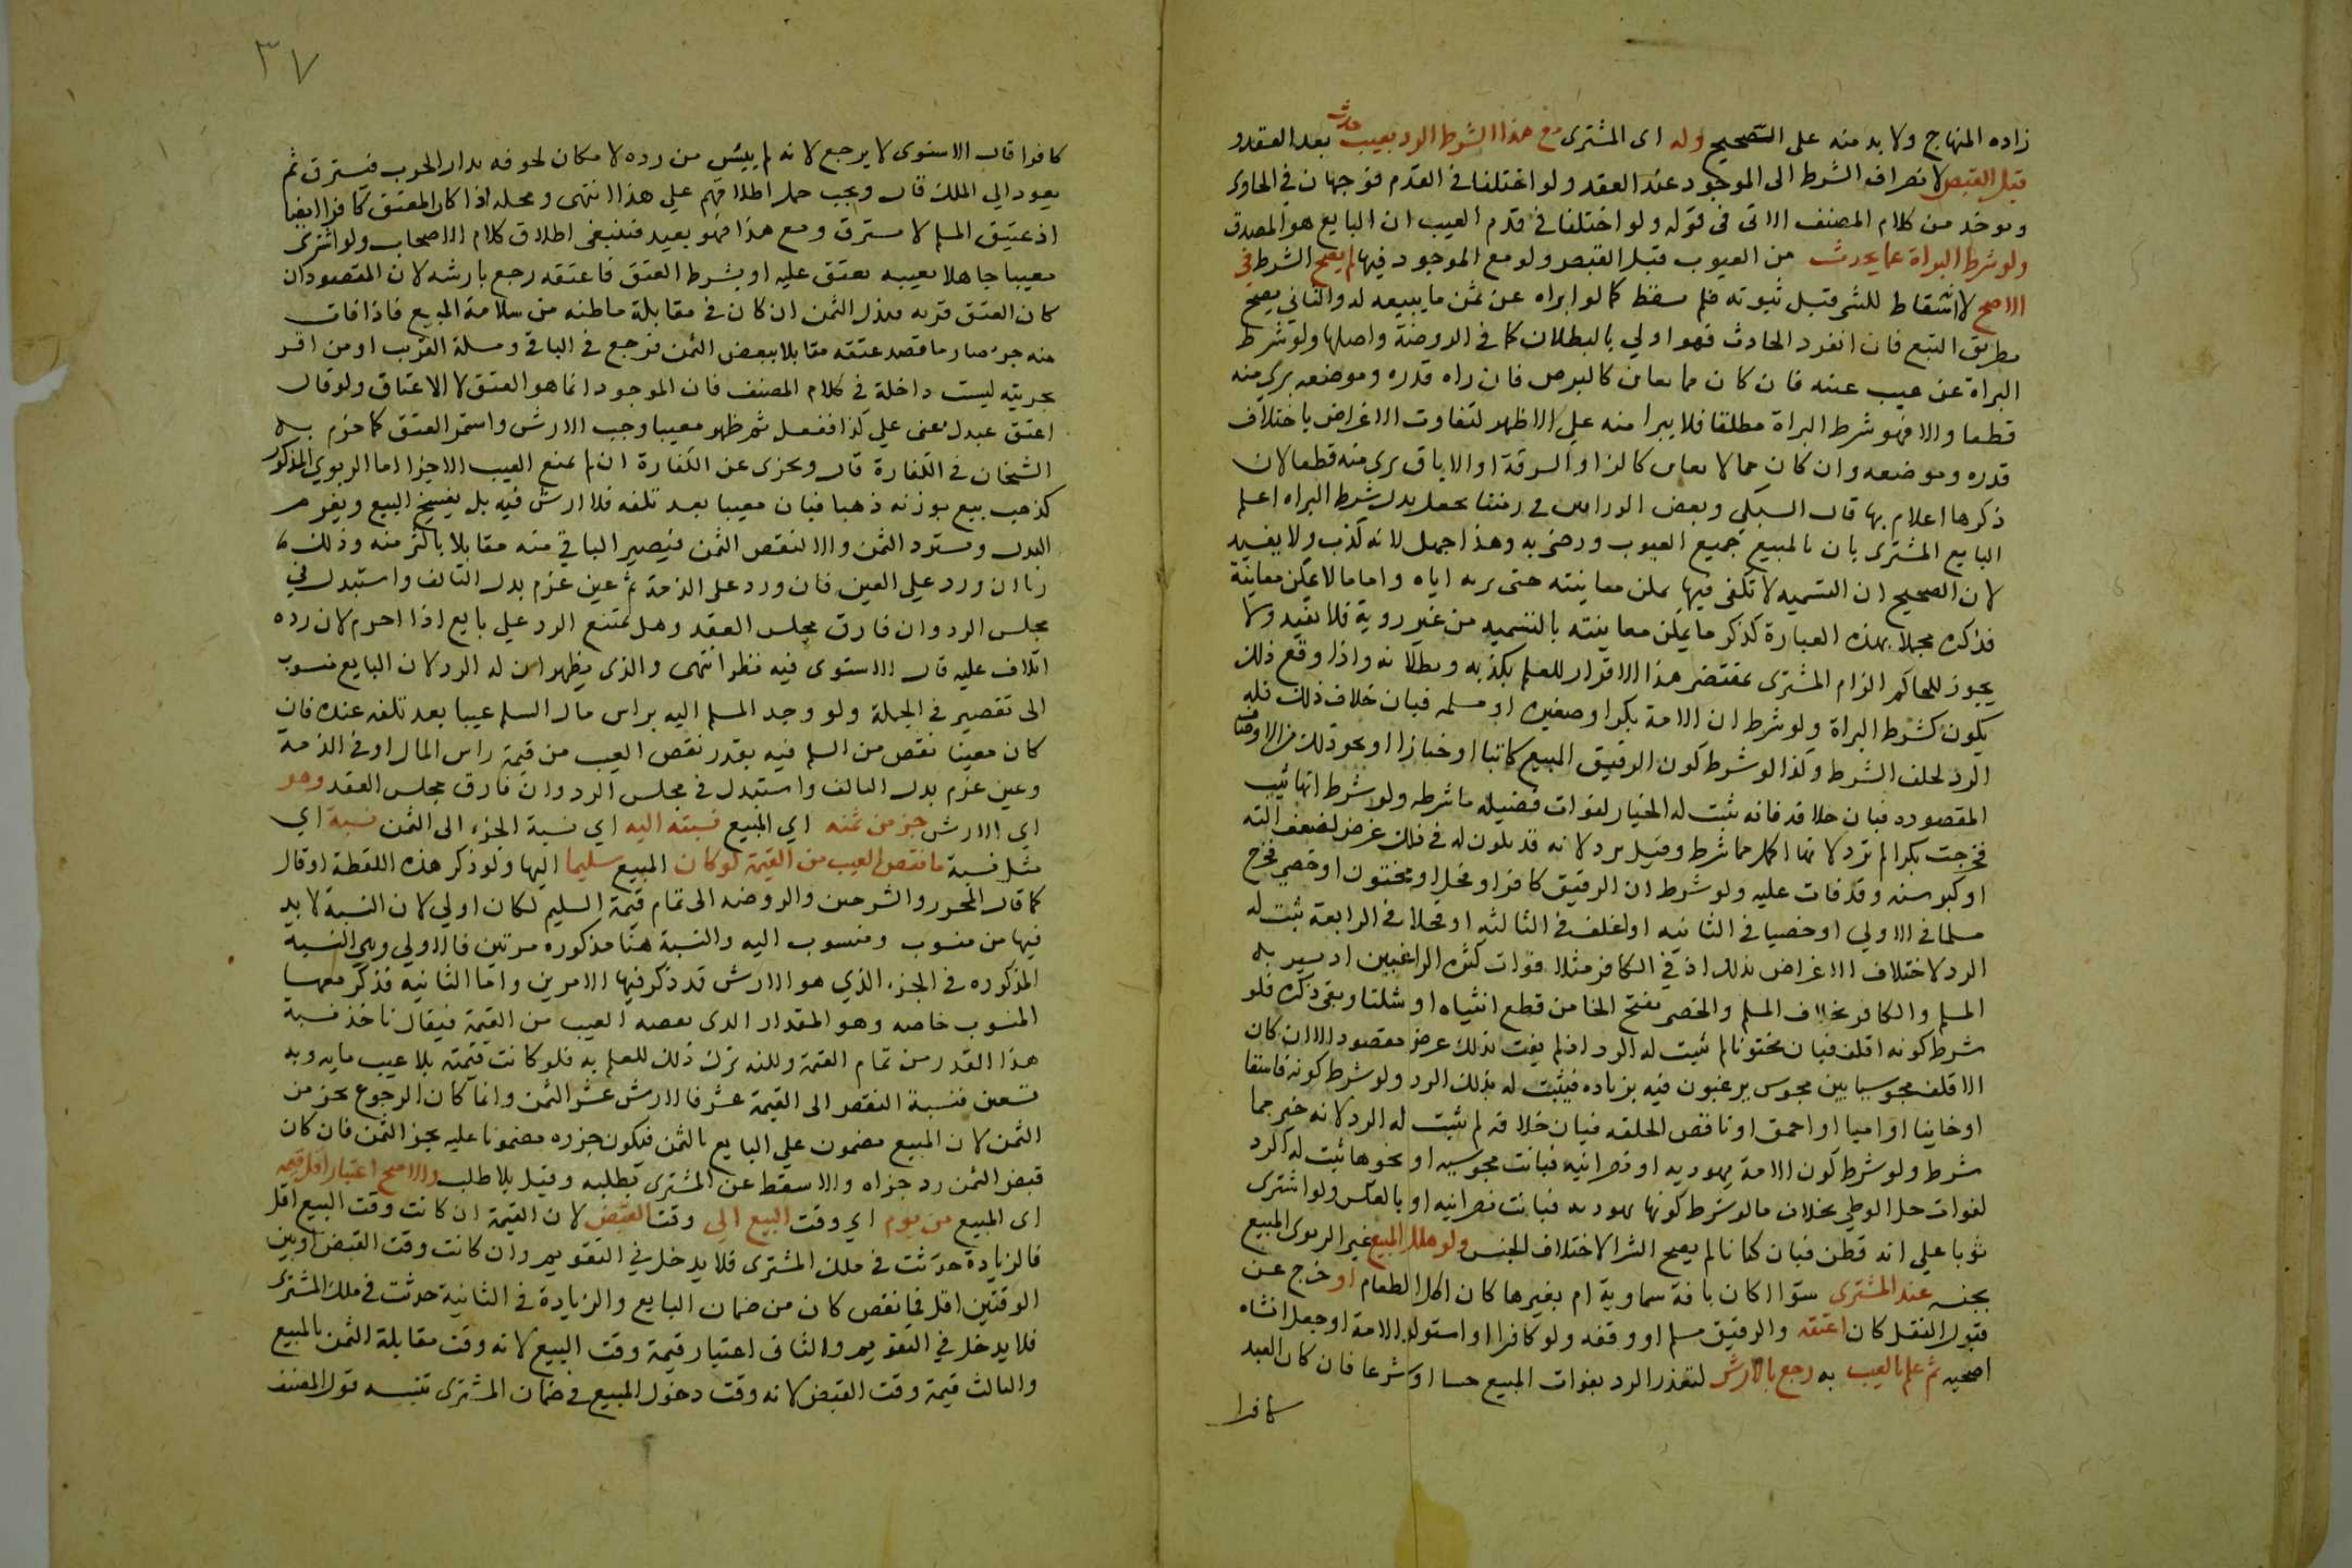 زاده المنهاج ولا بد منه على الصحيح وله اى المشترى مع هذا الشرط الرد بعيب حدث بعد العقد و
قبل القبض لانصراف الشرط الى الموجود عند العقد ولو اختلفا في القدم فوجهان في الحاوى
ويوخذ من كلام المصنف الاتى فى قوله ولو اختلفا في قدم العيب ان البايع هو المصدق
ولو شرط البراة عما يحدث من العيوب قبل القبض ولو مع الموجود فيها لم يصح الشرط في
الاصح لانه اسقاط للشى قبل ثبوته فلم يسقط كما لو ابراه عن ثمن ما يبيعه له والثاني يصح
بطريق التبع فان انفرد الحادث فهو اولي بالبطلان كما في الروضة واصلها ولو شرط
البراة عن عيب عينه فان كان مما يعاين كالبرص فان راه قدره وموضعه برى منه
قطعا والا فهو شرط البراة مطلقا فلا يبرا منه على الاظهر لتفاوت الاغراض باختلاف
قدره وموضعه وان كان مما لا يعاين كالزنا او السرقة او الاباق برى منه قطعا لان
ذكرها اعلام بها قال السبكي وبعض الوراقين في زمننا يجعل بدل شرط البراه اعلم
البايع المشترى بان بالمبيع جميع العيوب ورضى به وهذا جهل لانه كذب ولا يفيد
لان الصحيح ان التسميه لا تكفى فيما يمكن معاينته حتى يريه اياه واما ما لا يمكن معاينة
فذكره مجملا بهذه العبارة كذكر ما يمكن معاينته بالتسميه من غير روية فلا يفيد ولا
يجوز للحاكم الزام المشترى بمقتضى هذا الاقرار للعلم بكذبه وبطلانه واذا وقع ذلك
يكون كشرط البراة ولو شرط ان الامة بكر او صغيره او مسلمه فبان خلاف ذلك فله
الرد لخلف الشرط وكذا لو شرط كون الرقيق المبيع كاتبا او خبازا او نحو ذلك من الاوصاف
المقصوده فبان خلافه فانه يثبت له الخيار لفوات فضيله ما شرطه ولو شرط انها ثيب
فخرجت بكرا لم ترد لانها اكمل مما شرط وقيل يرد لانه قد يكون له في ذلك غرض لضعف الته
او كبر سنه وقد فات عليه ولو شرط ان الرقيق كافر او فحل او مختون او خصي فخرج
مسلما في الاولي او خصيا في الثانيه او اغلف في الثالثه او فحلا في الرابعة ثبت له
الرد لاختلاف الاغراض بذلك اذ في الكافر مثلا فوات كثره الراغبين اذ يشتريه
المسلم والكافر بخلاف المسلم والخصي بفتح الخا من قطع انثياه او شلتا وبقى ذكره فلو
شرط كونه اقلف فبان مختونا لم يثبت له الرد اذ لم يفت بذلك غرض مقصود الا ان كان
الاقلف مجوسيا بين مجوس يرغبون فيه بزياده فيثبت له بذلك الرد ولو شرط كونه فاسقا
او خاينا او اميا او احمق او ناقص الخلقه فبان خلافه لم يثبت له الرد لانه خير مما
شرط ولو شرط كون الامة يهوديه او نصرانيه فبانت مجوسيه او نحوها ثبت له الرد
لفوات حل الوطي بخلاف ما لو شرط كونها يهوديه فبانت نصرانيه او بالعكس ولو اشترى
ثوبا علي انه قطن فبان كتانا لم يصح الشرا لاختلاف الجنس ولو هلك المبيع غير الربوى المبيع
بجنسه عند المشترى سوا ا كان بافة سماوية ام بغيرها كان اكل الطعام او خرج عن
قبول النقل كان اعتقه والرقيق مسلم او وقفه ولو كافرا او استولد الامة او جعل الشاه
اضحيه ثم علم العيب به رجع بالارش لتعذر الرد بفوات المبيع حسا او شرعا فان كان العبد
كافرا
٣٧
كافرا قال الاسنوى لا يرجع لانه لم ييئس من رده لامكان لحوقه بدار الحرب فيسترق ثم
يعود الي الملك قال ويجب حمل اطلاقهم علي هذا انتهى ومحله اذا كان المعتق كافرا ايضا
اذ عتيق المسلم لا يسترق ومع هذا فهو بعيد فينبغى اطلاق كلام الاصحاب ولو اشترى
معيبا جاهلا بعيبه يعتق عليه او بشرط العتق فاعتقه رجع بارشه لان المقصود ان
كان العتق قربه فبذل الثمن ان كان في مقابلة ما ظنه من سلامة المبيع فاذا فات
منه جزء صار ما قصد عتقه مقابلا ببعض الثمن فرجع في الباقي ومسلة القريب او من اقر
بحريته ليست داخلة في كلام المصنف فان الموجود انما هو العتق لا الاعتاق ولو قال
اعتق عبدك عنى علي كذا ففعل ثم ظهر معيبا وجب الارش واستمر العتق كما جزم به
الشيخان في الكفارة قال ويجزى عن الكفارة ان لم يمنع العيب الاجزا اما الربوي المذكور
كذهب بيع بوزنه ذهبا فبان معيبا بعد تلفه فلا ارش فيه بل يفسخ البيع ويغرم
البدل ويسترد الثمن والا لنقص الثمن فيصير الباقي منه مقابلا باكثر منه وذلك
ربا ان ورد علي العين فان ورد على الذمة ثم عين غرم بدل التالف واستبدل في
مجلس الرد وان فارق مجلس العقد وهل يمتنع الرد علي بايع اذا احرم لان رده
اتلاف عليه قال الاسنوى فيه نظر انتهى والذى يظهر ان له الرد لان البايع منسوب
الى تقصير في الجملة ولو وجد المسلم اليه براس مال السلم عيبا بعد تلفه عنده فان
كان معينا نقص من المسلم فيه بقدر نقص العيب من قيمة راس المال او في الذمة
وعين غرم بدل التالف واستبدل في مجلس الرد وان فارق مجلس العقد وهو
اي الارش جز من ثمنه اي المبيع نسبته اليه اي نسبة الجزء الى الثمن نسبة اي
مثل نسبة ما نقص العيب من القيمة لو كان المبيع سليما اليها ولو ذكر هذه اللفظة او قال
كما قال المحرر والشرحين والروضه الى تمام قيمة السليم لكان اولي لان النسبة لا بد
فيها من منسوب ومنسوب اليه والنسبة هنا مذكوره مرتين فالاولي وهي النسبة
المذكوره في الجزء الذي هو الارش قد ذكر فيها الامرين واما الثانيه فذكر معها
المنسوب خاصه وهو المقدار الذى نقصه العيب من القيمة فيقال ناخذ نسبة
هذا القدر من تمام القيمة ولكنه ترك ذلك للعلم به فلو كانت قيمته بلا عيب مايه وبه
تسعين فنسبة النقص الى القيمة عشر فالارش عشر الثمن وانما كان الرجوع بجز من
الثمن لان المبيع مضمون علي البايع بالثمن فيكون جزوه مضمونا عليه بجز الثمن فان كان
قبض الثمن رد جزاه والا سقط عن المشترى بطلبه وقيل بلا طلب والاصح اعتبار اقل قيمه
اى المبيع من يوم اي وقت البيع الي وقت القبض لان القيمة ان كانت وقت البيع اقل
فالزيادة حدثت في ملك المشترى فلا يدخل في التقويم وان كانت وقت القبض او بين
الوقتين اقل فما نقص كان من ضمان البايع والزيادة في الثانية حدثت في ملك المشترى
فلا يدخل في التقويم والثانى اعتبار قيمة وقت البيع لانه وقت مقابلة الثمن بالمبيع
والثالث قيمة وقت القبض لانه وقت دخول المبيع في ضمان المشترى تنبيه قول المصنف